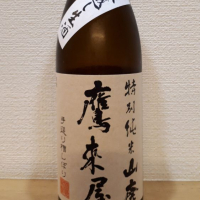 生酒
特別純米山廃
鷹來屋
手造り槽しぼり